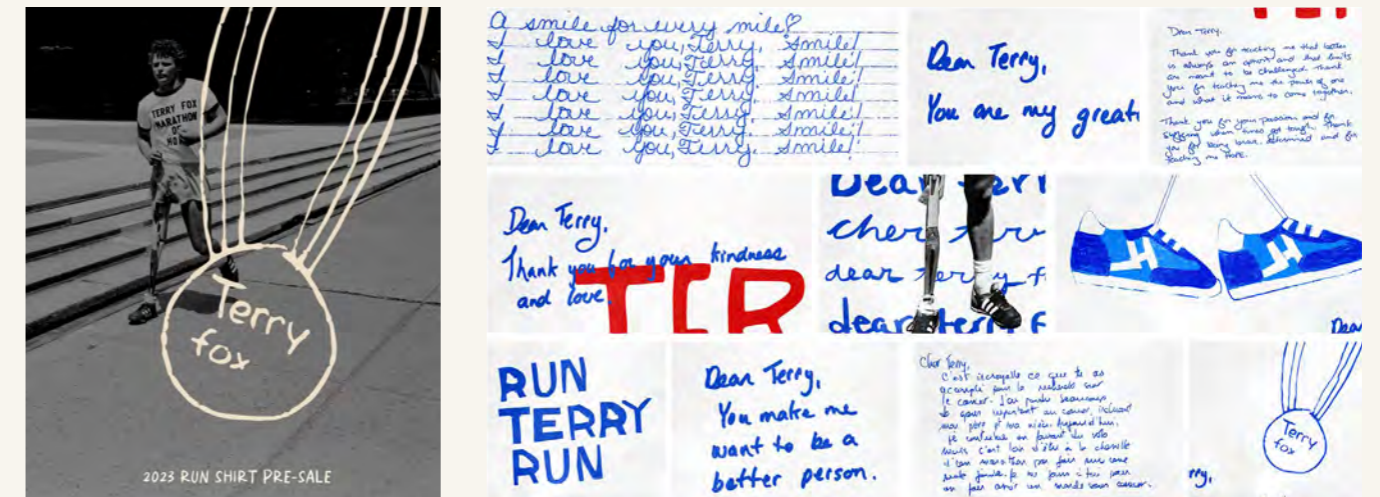 TERRY FOX
MARATHON
OF
HO
Terry
fox
2023 RUN SHIRT PRE-SALE
A smile for every mile♡
I love you, Terry. Smile!
I love you, Terry. Smile!
I love you, Terry. Smile!
I love you, Terry. Smile!
I love you, Terry. Smile!
I love you, Terry. Smile!
I love you, Terry. Smile!
Dear Terry,
You are my great
Dear Terry,
Thank you for teaching me that better
is always an option and that limits
are meant to be challenged. Thank
you for teaching me the power of one
and what it means to come together.
Thank you for your passion and for
when times got tough. Thank
you for being brave, determined and for
teaching me hope.
Dear Terry,
Thank you for your kindness
and love.
TER
Dear Terr
cher
dear terry f
dear terry f
Dea
RUN
TERRY
RUN
Dear Terry,
You make me
want to be a
better person.
Cher Terry,
C'est incroyable ce que tu as
accompli pour la recherche sur
le cancer. J'ai perdu beaucoup
rry,
Terry
fox